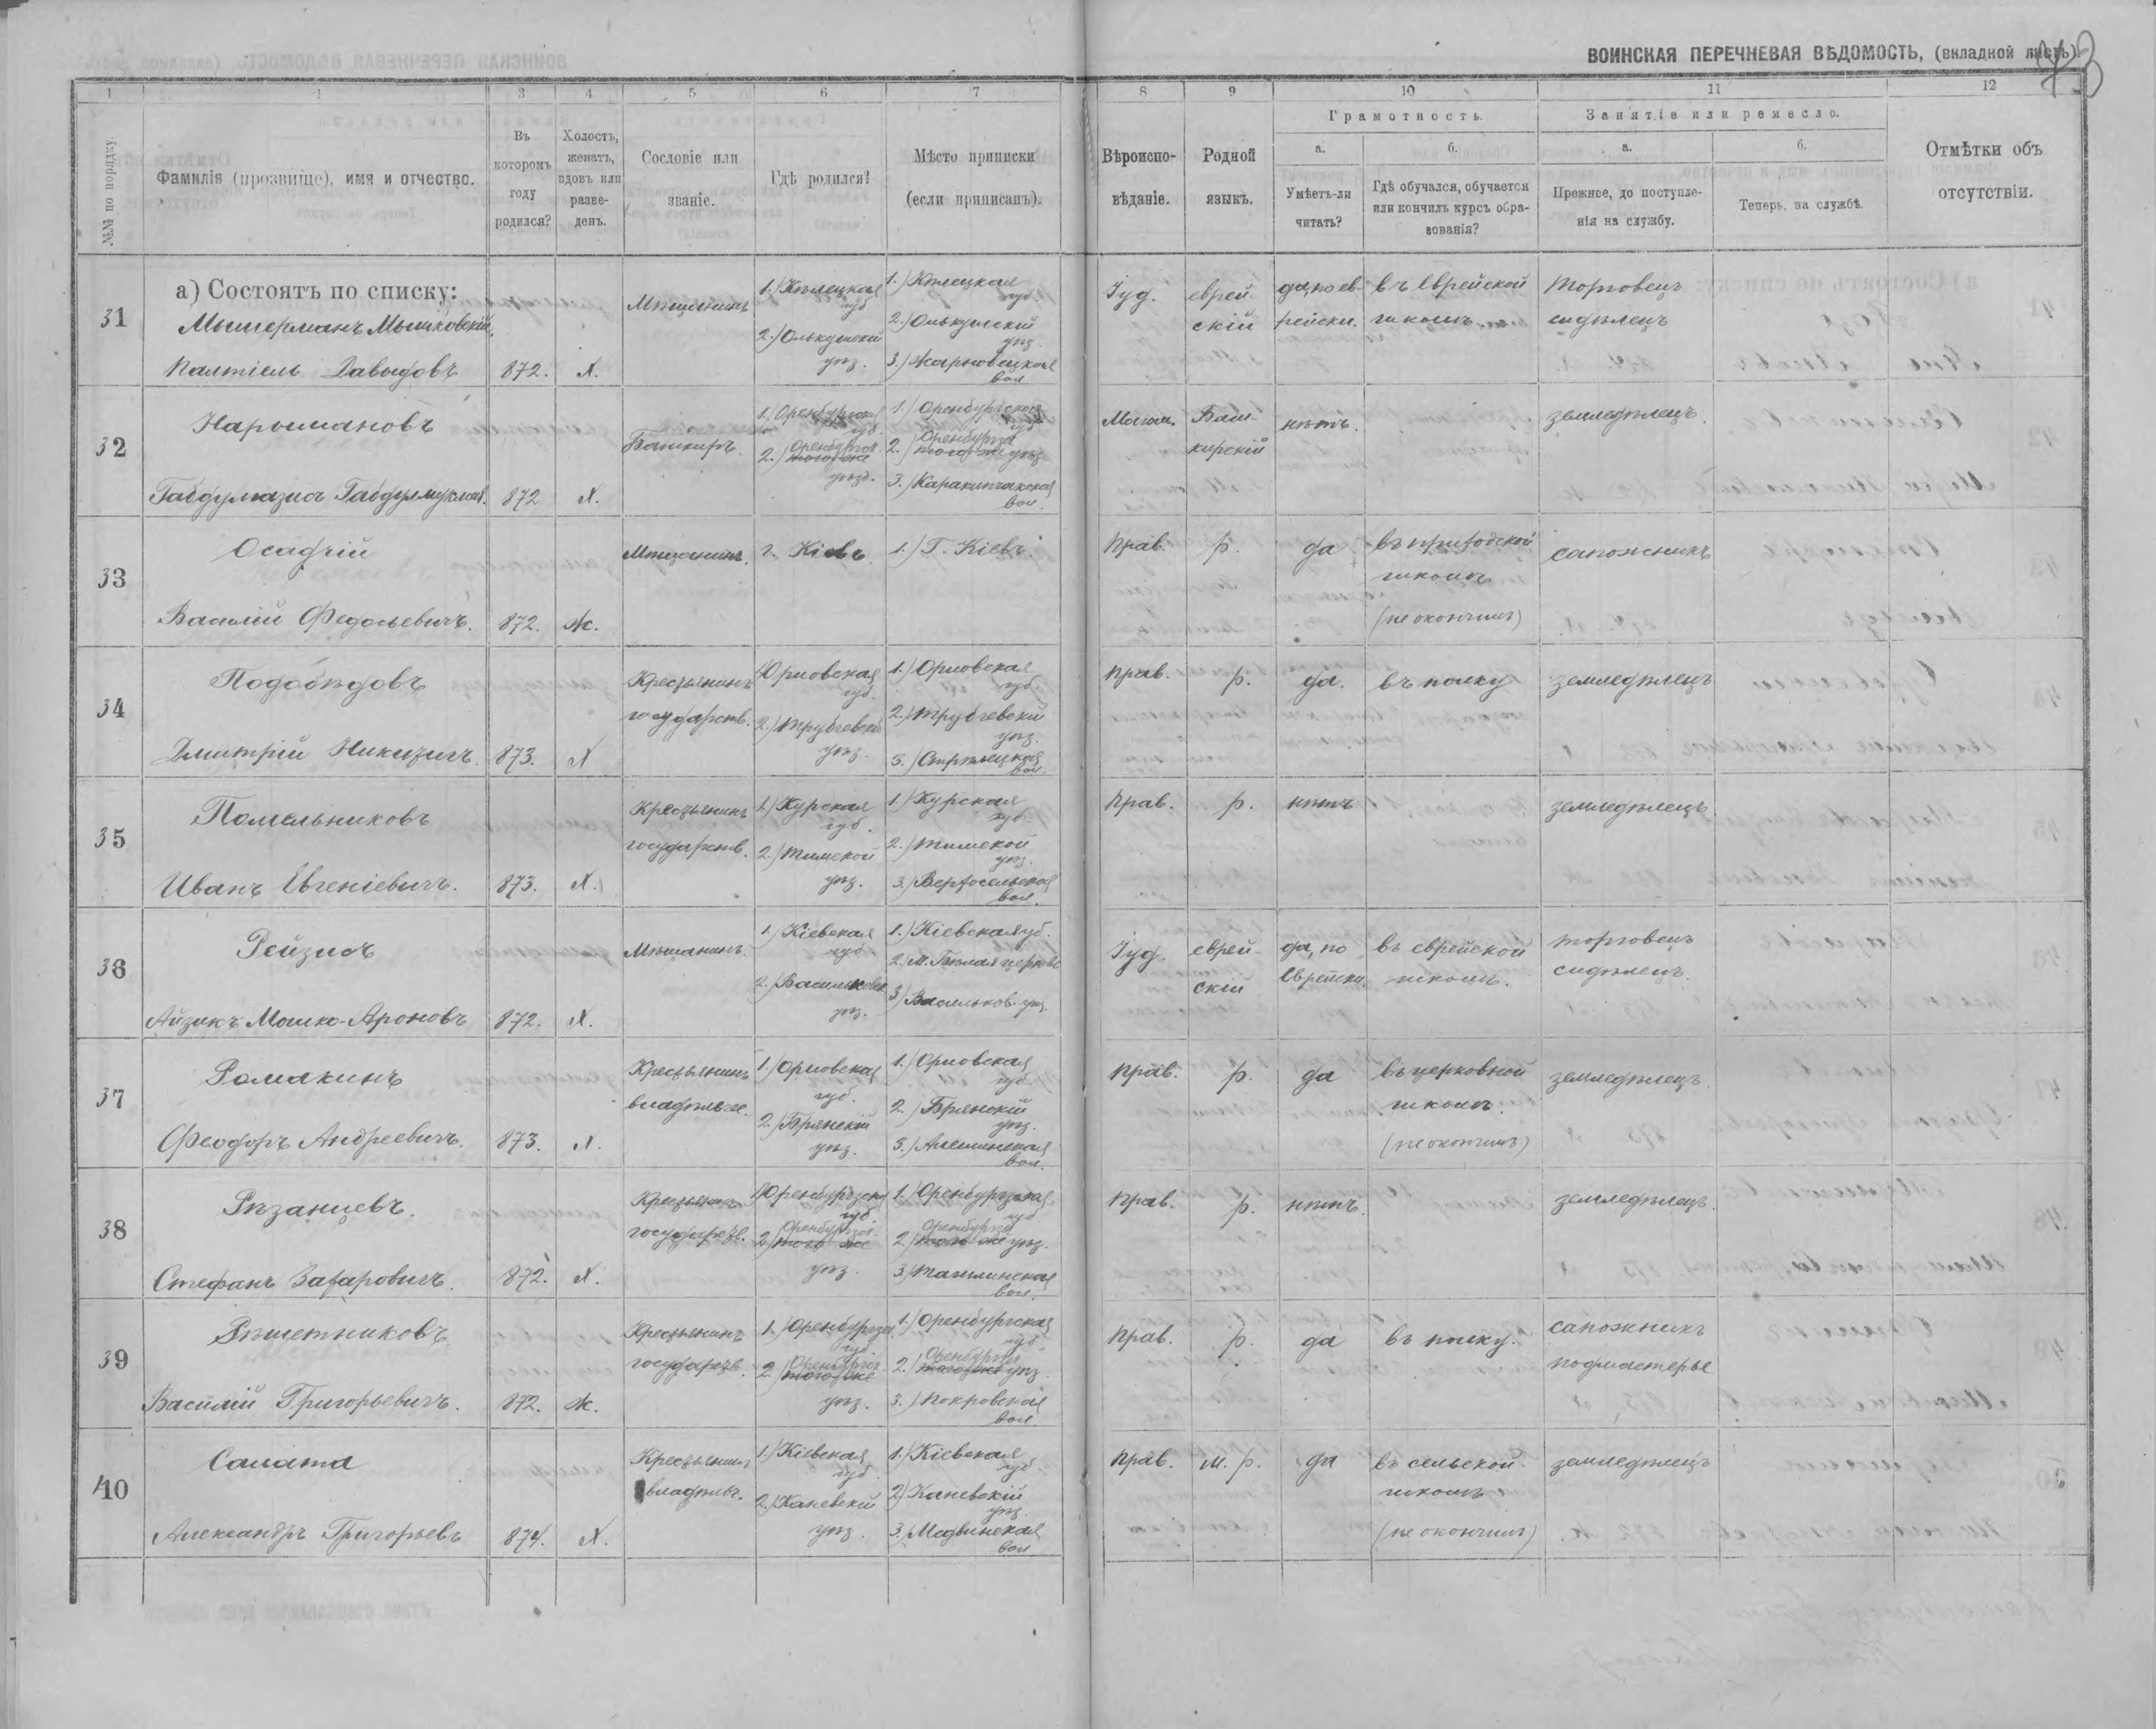 ВОИНСКАЯ ПЕРЕЧНЕВАЯ ВѢДОМОСТЬ, (вкладной листъ).
73
1 1 3 4 5 6 7 8 9 10 11 12
№№ по порядку.
Фамилія (прозвище), имя и отчество.
Въ которомъ году родился?
Холостъ, женатъ, вдовъ или разведенъ.
Сословіе или званіе.
Гдѣ родился?
Мѣсто приписки (если приписанъ).
Вѣроисповѣданіе.
Родной языкъ.
Грамотность.
а. Умѣетъ-ли читать?
б. Гдѣ обучался, обучается или кончилъ курсъ образованія?
Занятіе или ремесло.
а. Прежнее, до поступленія на службу.
б. Теперь, на службѣ.
Отмѣтки объ отсутствіи.
а) Состоятъ по списку:
31 Мышковскій Давыдовъ 872. Х. Мѣщанинъ 1.) Кѣлецкая губ 2.) Олькушскій уѣз. 1.) Кѣлецкая губ. 2.) Олькушскій уѣз. 3.) Жарновецкая вол. Іуд. еврейскій да, по еврейски. въ Еврейской школѣ. торговецъ сидѣлецъ
32 Нарымановъ 872 Х. Башкиръ. 1.) Оренбургская губ. 2.) Оренбургск. того же уѣзд. 1.) Оренбургская губ 2.) Оренбургск того же уѣз 3.) Каракипчакская вол. Магом. Башкирскій нѣтъ. земледѣлецъ.
33 Осадчій Василій 872. Ж. Мѣщанинъ. г. Кіевъ 1.) Г. Кіевъ. Прав. р. да въ приходской школѣ (не окончилъ) сапожникъ
34 Подобѣдовъ Дмитрій 873. Х Крестьянинъ государств. 1) Орловская губ. 2.) Трубчевскій уѣз. 1.) Орловская губ. 2.) Трубчевскій уѣз. 3.) Стрѣлецкая вол. Прав. р. да. въ полку земледѣлецъ
35 Помельниковъ Иванъ Евгеніевичъ. 873. Х. Крестьянинъ государств. 1.) Курская губ. 2.) Тимской уѣз. 1.) Курская губ. 2.) Тимской уѣз. 3.) Верхосемская вол. Прав. р. нѣтъ земледѣлецъ
36 Рейзисъ Айзикъ Мошко-Ароновъ 872. Х. Мѣщанинъ. 1.) Кіевская губ 2.) Васильковск уѣз. 1.) Кіевская губ. 2. М. Бѣлая церковь 3.) Васильков. уѣз. Іуд. еврейскій да, по Еврейски въ еврейской школѣ. торговецъ сидѣлецъ.
37 Ромакинъ Феодоръ Андреевичъ. 873. Х. Крестьянинъ владѣльч. 1.) Орловская губ. 2.) Брянскій уѣз. 1.) Орловская губ 2.) Брянскій уѣз. 3.) вол. Прав. р. да въ церковной школѣ. (не окончилъ) земледѣлецъ.
38 Рѣзанцевъ. Стефанъ Захаровичъ. 872. Х. Крестьянинъ государств. 1) Оренбургская губ. 2) Оренбургск. того же уѣз. 1.) Оренбургская губ 2.) Оренбургск того же уѣз. 3.) Ташлинская вол. Прав. р. нѣтъ. земледѣлецъ.
39 Рѣшетниковъ Василій Григорьевичъ. 872. Ж. Крестьянинъ государств. 1.) Оренбургская губ. 2.) Оренбургск того же уѣз. 1.) Оренбургская губ 2.) Оренбургск того же уѣз. 3.) Покровская вол Прав. р. да въ полку. сапожникъ подмастерье
40 Салата Александръ Григорьевъ 874. Х. Крестьянинъ владѣльч. 1.) Кіевская губ. 2.) Каневскій уѣз. 1.) Кіевская губ. 2) Каневскій уѣз. 3.) Медвинская вол. Прав. м. р. да въ сельской школѣ (не окончилъ) земледѣлецъ